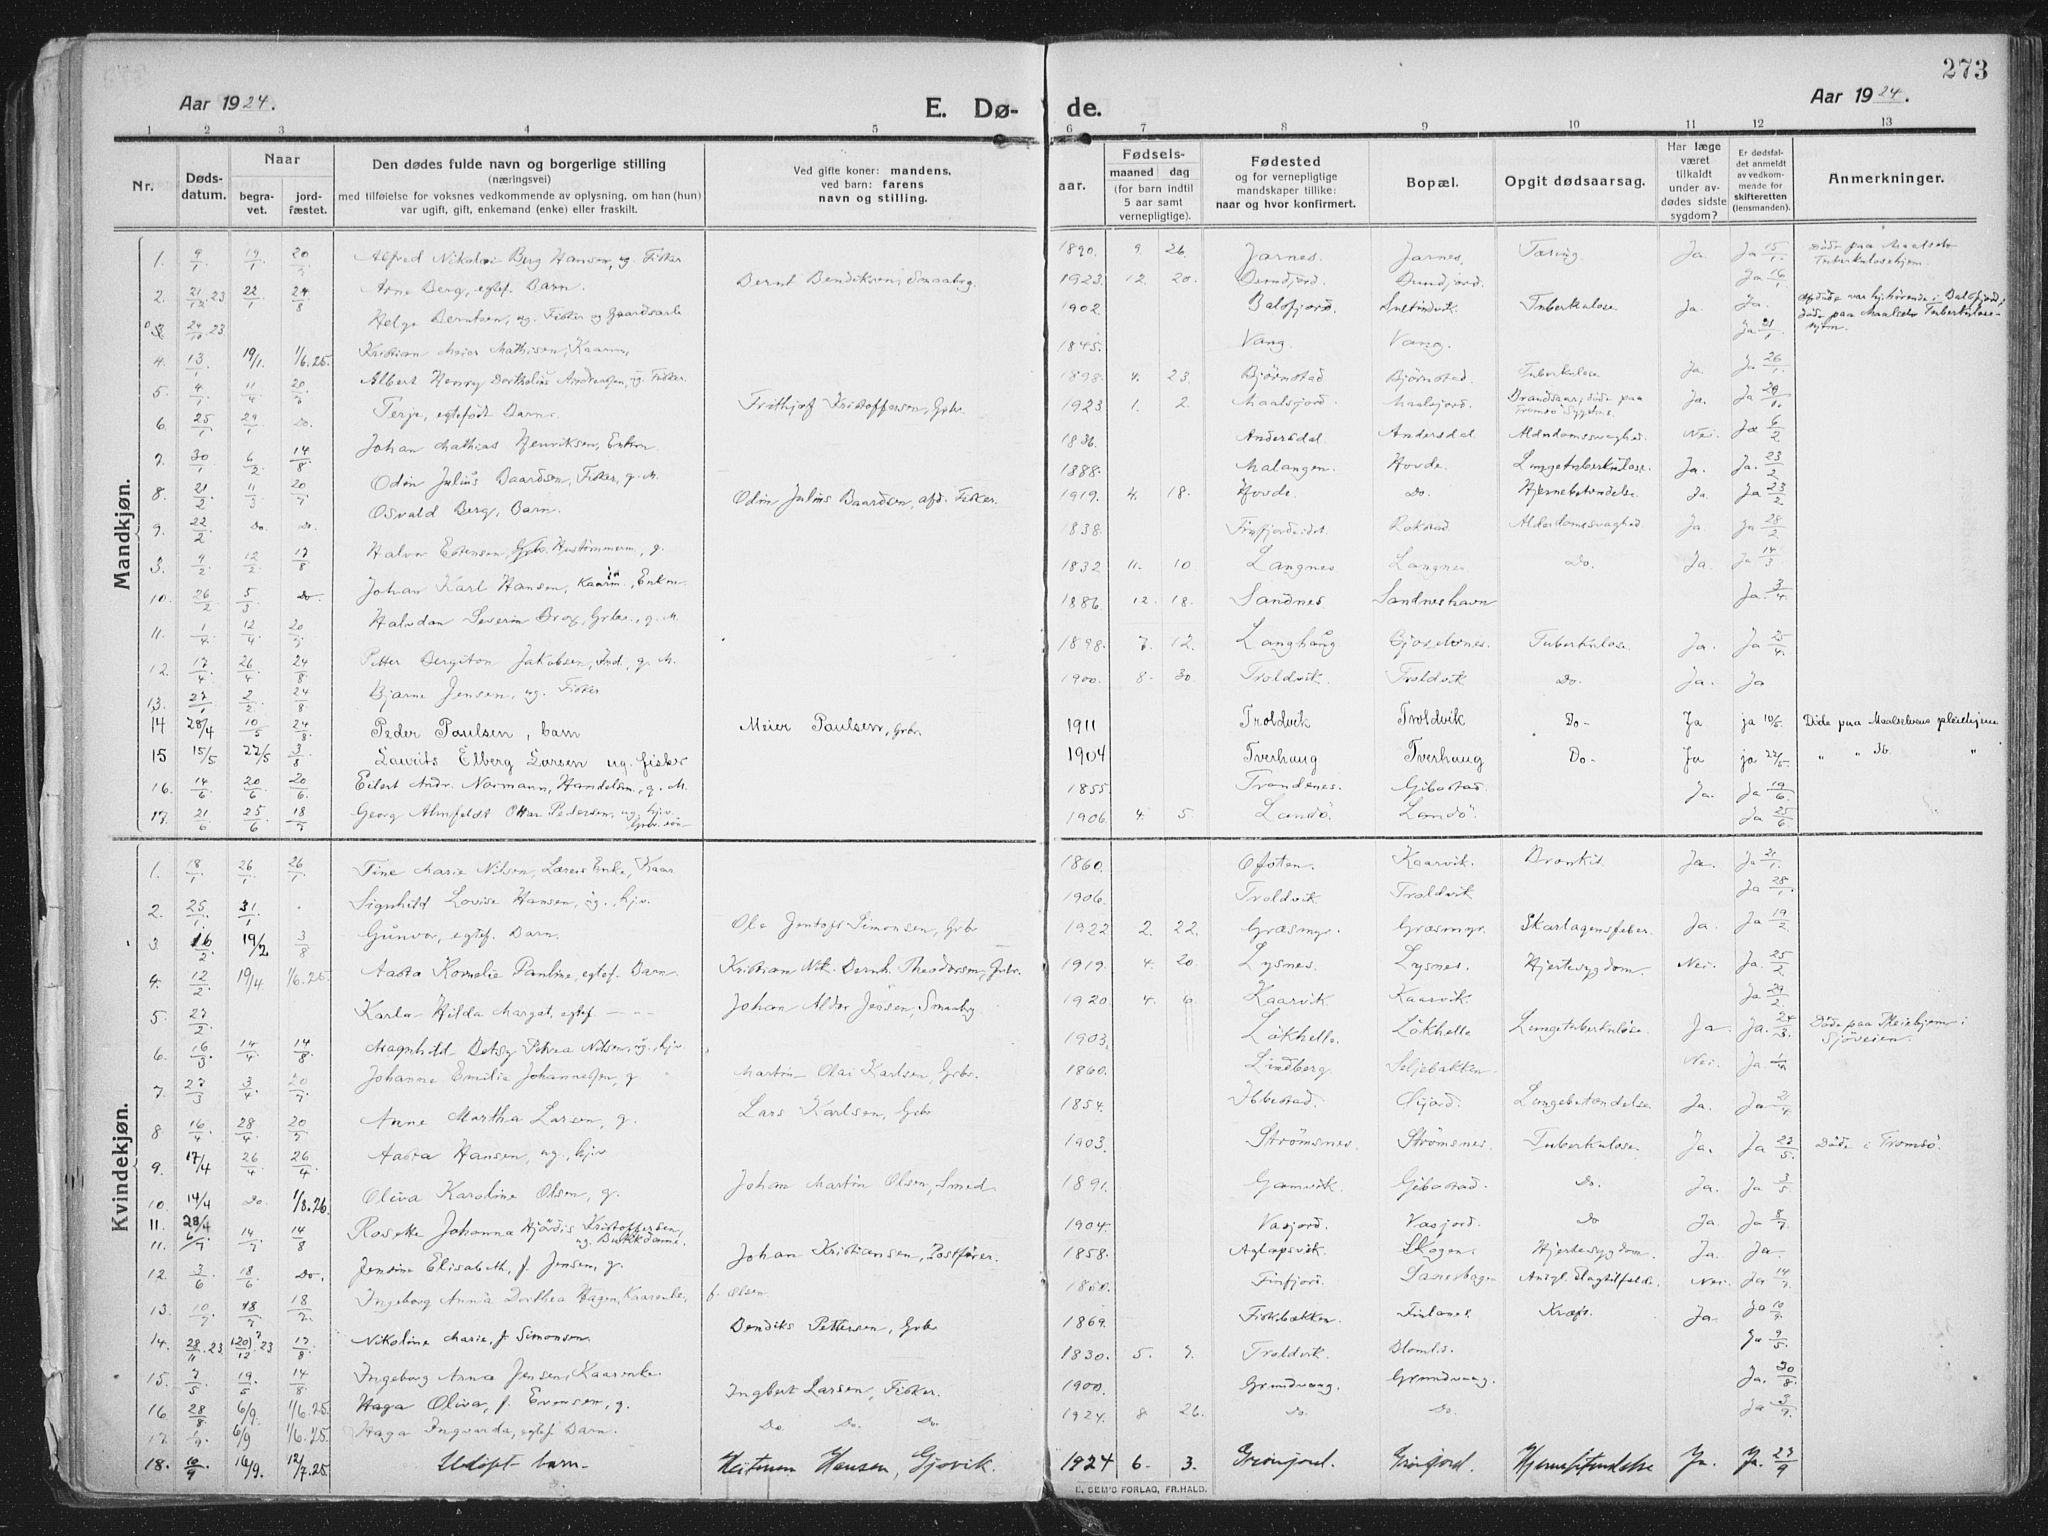 273
Aar 1924. E. Dø- de. Aar 1924.
1 2 3 4 5 6 7 8 9 10 11 12 13
Nr. Dødsdatum. Naar begravet. jordfæstet. Den dødes fulde navn og borgerlige stilling (næringsvei) med tilføielse for voksnes vedkommende av oplysning, om han (hun) var ugift, gift, enkemand (enke) eller fraskilt. Ved gifte koner: mandens, ved barn: farens navn og stilling. aar. Fødsels- maaned dag (for barn indtil 5 aar samt vernepligtige). Fødested og for vernepligtige mandskaper tillike: naar og hvor konfirmert. Bopæl. Opgit dødsaarsag. Har læge været tilkaldt under avdødes sidste sygdom? Er dødsfaldet anmeldt av vedkommende for skifteretten (lensmanden). Anmerkninger.
Mandkjøn.
1. 9/1 19/1 20/7 Alfred Nikolai Berg Hansen, ug. Fisker 1890. 9. 26. Jarnes. Jarnes. Tæring. Ja. Ja 15/1 Døde paa Maalselv Tuberkulosehjem.
2. 21/12.23 22/1 24/8 Arne Berg, egtef. Barn. Bernt Bendiksen, Smaabrg. 1923. 12. 20. Ja 16/1
24/10.23 Helge Berntsen, ug. Fisker og Gaardsarb. 1902. Balsfjord. Tuberkulose Ja. Ja. Ja 21/1
4. 13/1 19/1. 1/6.25. Kristian Meier Mathisen, Kaarm, 1845. Vang. Vang.
5. 4/1 11/4 20/7 Albert Henry Andreassen, ug. Fisker. 1898. 4. 23. Bjørnstad Bjørnstad. Tuberkulose Ja. Ja 26/1
6. 25/1 29/1 Do. Terje, egtefødt Barn. Frithjof Kristoffersen, Grbr. 1923. 1. 2. Maalsjord. Maalsjord. Brandsaar, døde paa Tromsø Sygehus. Ja. Ja 29/1
7. 30/1 6/2 14/8 Johan Mathias Henriksen, Enkem. 1836. Andersdal. Andersdal Alderdomssvaghed. Nei. Ja 6/2
8. 21/2 11/3 20/7 Odin Julius Baardsen, Fisker, g. M. 1888. Malangen. Hovde. Lungetuberkulose. Ja. Ja. 23/2
9. 22/2 Do. Do. Osvald Berg, Barn. Odin Julius Baardsen, afd. Fisker. 1919. 4. 18. Hovde. Do. Hjernebetændelse. Ja. Ja 23/2
3. 9/2 12/2 17/8 Halvor Estensen, Grbr. Hustømmerm., g. 1838. Finfjordeidet. Rokstad. Alderdomssvaghed Ja. Ja 28/2
10. 26/2 5/3 Do. Johan Karl Hansen, Kaarm., Enkem. 1832. 11. 10 Langnes Langnes. Do. Ja. Ja 14/3
11. 1/4 12/4 20/7 Halvdan Severin Brox, Grbr., g. M. 1886. 12. 18. Sandnes. Sandneshavn. Ja. 3/4
12. 17/4 26/4 24/8 Petter Bergiton Jakobsen, Ind., g. M. 1898. 7. 12. Langhaug Tuberkulose. Ja. Ja 25/4
13. 27/1 2/2 24/8 Bjarne Jensen, ug. Fisker 1900. 8. 30. Troldvik. Troldvik Do. Ja. Ja
14 28/4 10/5 24/8 Peder Paulsen, barn Meier Paulsen, Grbr. 1911 Troldvik Troldvik Do- Ja ja 10/5 Døde paa Maalselvens pleiehjem
15 15/5 22/5 3/8 Laurits Elberg Larsen ug. fisker 1904 Tverhaug Tverhaug Do- Ja ja 22/5. " " Ib. "
16. 14/6 20/6 20/6 Eilert Andr. Normann, Handelsm., g. M. 1855. Trondenes. Gibostad. Ja. Ja 19/6
17. 21/6 25/6 18/7 Georg Almfeldt Ottar Pedersen, ug. hjv. Grbr. søn 1906 4. 5. Landø. Landø. Ja 25/6
Kvindekjøn.
1. 18/1 26/1 26/1 Tine Marie Nilsen, Lærers Enke, Kaar. 1860. Ofoten. Kaarvik. Bronkit. Ja. Ja 21/1
2. 25/1 31/1 Signhild Lovise Hansen, ug. hjv. 1906. Troldvik. Troldvik Ja 28/1
3. 16/2 19/2 3/8 Gunvor, egtef. Barn. Ole Jentoft Simonsen, Grbr 1922 2. 22. Græsmyr. Græsmyr. Skarlagensfeber. Ja. Ja 19/2
4. 12/2 19/4. 1/6.25. Aasta Kornelie Pauline, egtef. Barn. Kristian Nik. Bernh. Theodorsen, Grbr. 1919. 4. 20. Lysnes. Lysnes. Hjertesygdom. Nei. Ja. 25/2
5. 27/2 Karla Hilda Margat, egtef. — - - Johan Aldor Jensen, Smaabrg 1920. 4. 6. Kaarvik Kaarvik. Ja 29/2
6. 16/3 14/4 14/8 Magnhild Betsy Petrea Nilsen, ug. hjv. 1903. Løkhelle. Løkhelle Lungetuberkulose. Ja. Ja. 24/3 Døde paa Pleiehjem i Sjøveien.
7. 27/3 3/4 20/7 Johanne Emilie Johannesen, g. Martin Olai Karlsen, Grbr. 1860. Lindberg Seljebakken. Nei. Ja. 1/4
8. 16/4 28/4 20/7 Anne Martha Larsen, g. Lars Karlsen, Grbr. 1854. Ibbestad. Lungebetændelse Ja. Ja 21/4
9. 17/4 26/4 26/4 Aasta Hansen, ug., hjv 1903. Strømsnes. Strømsnes. Tuberkulose Ja. Ja 22/5. Døde i Tromsø.
10. 14/4 Do. 1/8.26. Oliva Karoline Olsen, g. Johan Martin Olsen, Smed. 1891. Gamvik. Gibostad. Do. Ja. Ja 3/5
11. 28/4
11. 6/7 14/7 14/8 Rosette Johanna Hjørdis Kristoffersen, ug. Butikdame. 1904. Vasjord. Vasjord. Do Ja. Ja 8/7
12. 3/6 18/6 Do. Jensine Elisabeth, f. Jensen, g. Johan Kristiansen, Postfører. 1858. Aglapsvik. Skogen. Hjertesygdom. Ja. Ja.
13. 10/7 18/7 18/7 Ingeborg Anna Dorthea Hagen, Kaarenke, f. Olsen 1850. Finfjord. Slagtilfælde. Nei. Ja 14/7
14. 28/11.23 20/12.23 17/8 Nikoline Marie, f. Simonsen. Bendiks Pettersen, Grbr 1869. Fiskebækken. Finlanes. Kræft. Ja. Ja 10/7
15. 7/5 19/5 14/8 Ingeborg Anna Jensen, Kaarenke. 1830. 5. 7. Troldvik. Ja 9/5
16. 28/8. 6/9. 1/6.25. Haga Oliva, f. Evensen, g. Ingbert Larsen, Fisker. 1900. Grundvaag. Grundvaag. Ja. 30/8
17. 6/9 1/6.25. Haga Ingvarda, egtef. Barn. Do. Do. Do. 1924. 8. 26. Do. Do. Ja 3/9.
18. 10/9. 16/9. 12/7.25. Udøpt barn. Hansen, Gjøvik. 1924 6. 3. Ja. Ja. 23/9
E. SEM'S FORLAG, FR.HALD.